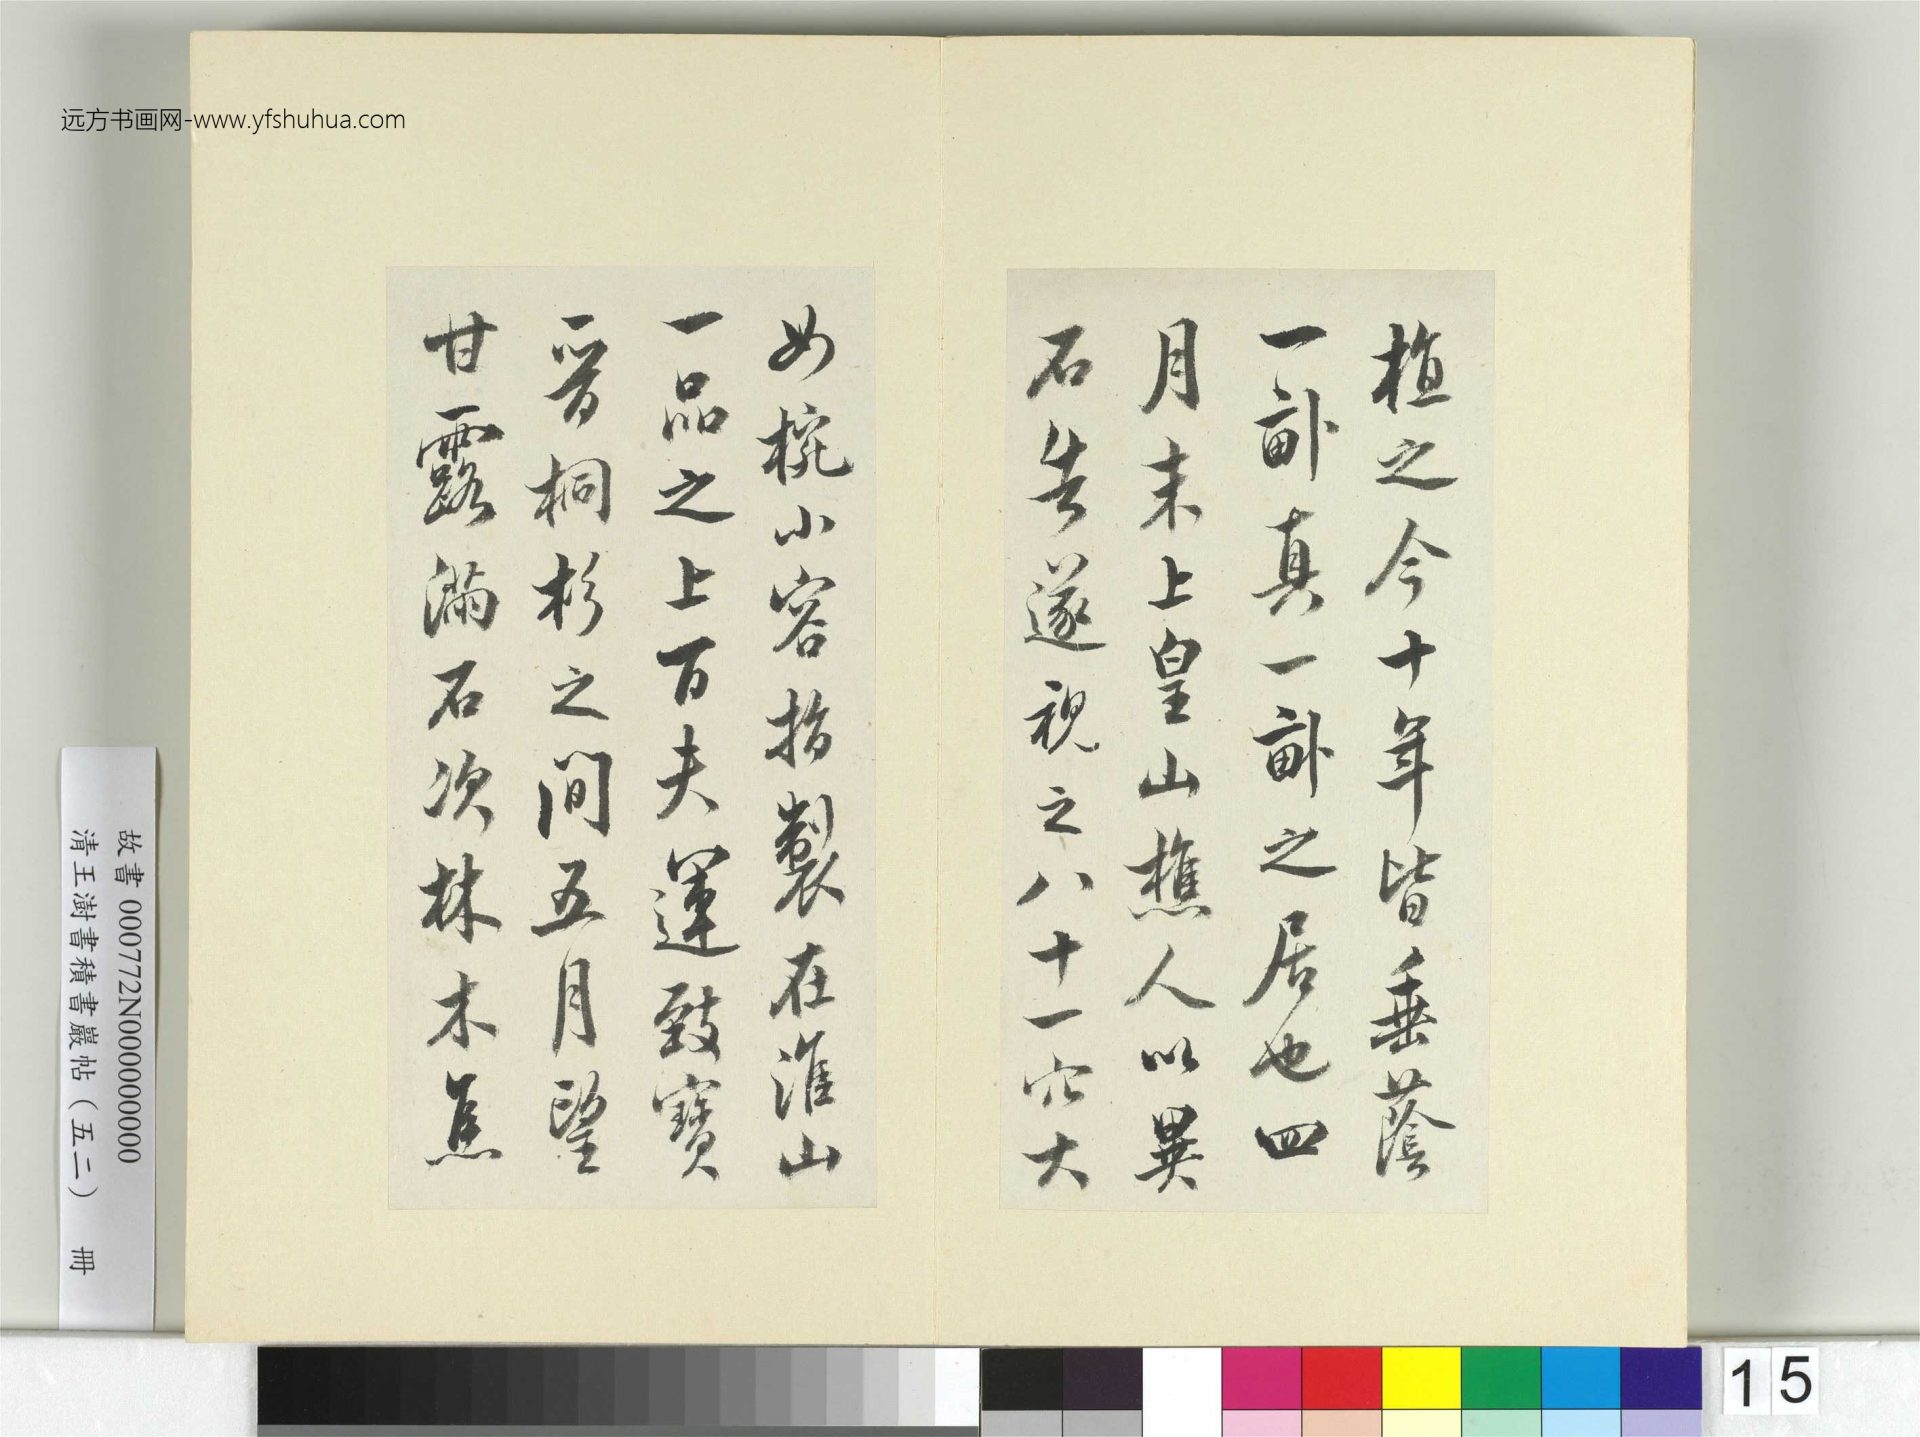 远方书画网-www.yfshuhua.com
植之今十年皆垂蔭
一畝真一畝之居也四
月末上皇山樵人以異
石告遂視之八十一穴大
如椀小容指製在淮山
一品之上百夫運致寶
晉桐杉之間五月望
甘露滿石次林木焦
故書 000772N000000000
清王澍書積書巖帖(五二) 冊
15